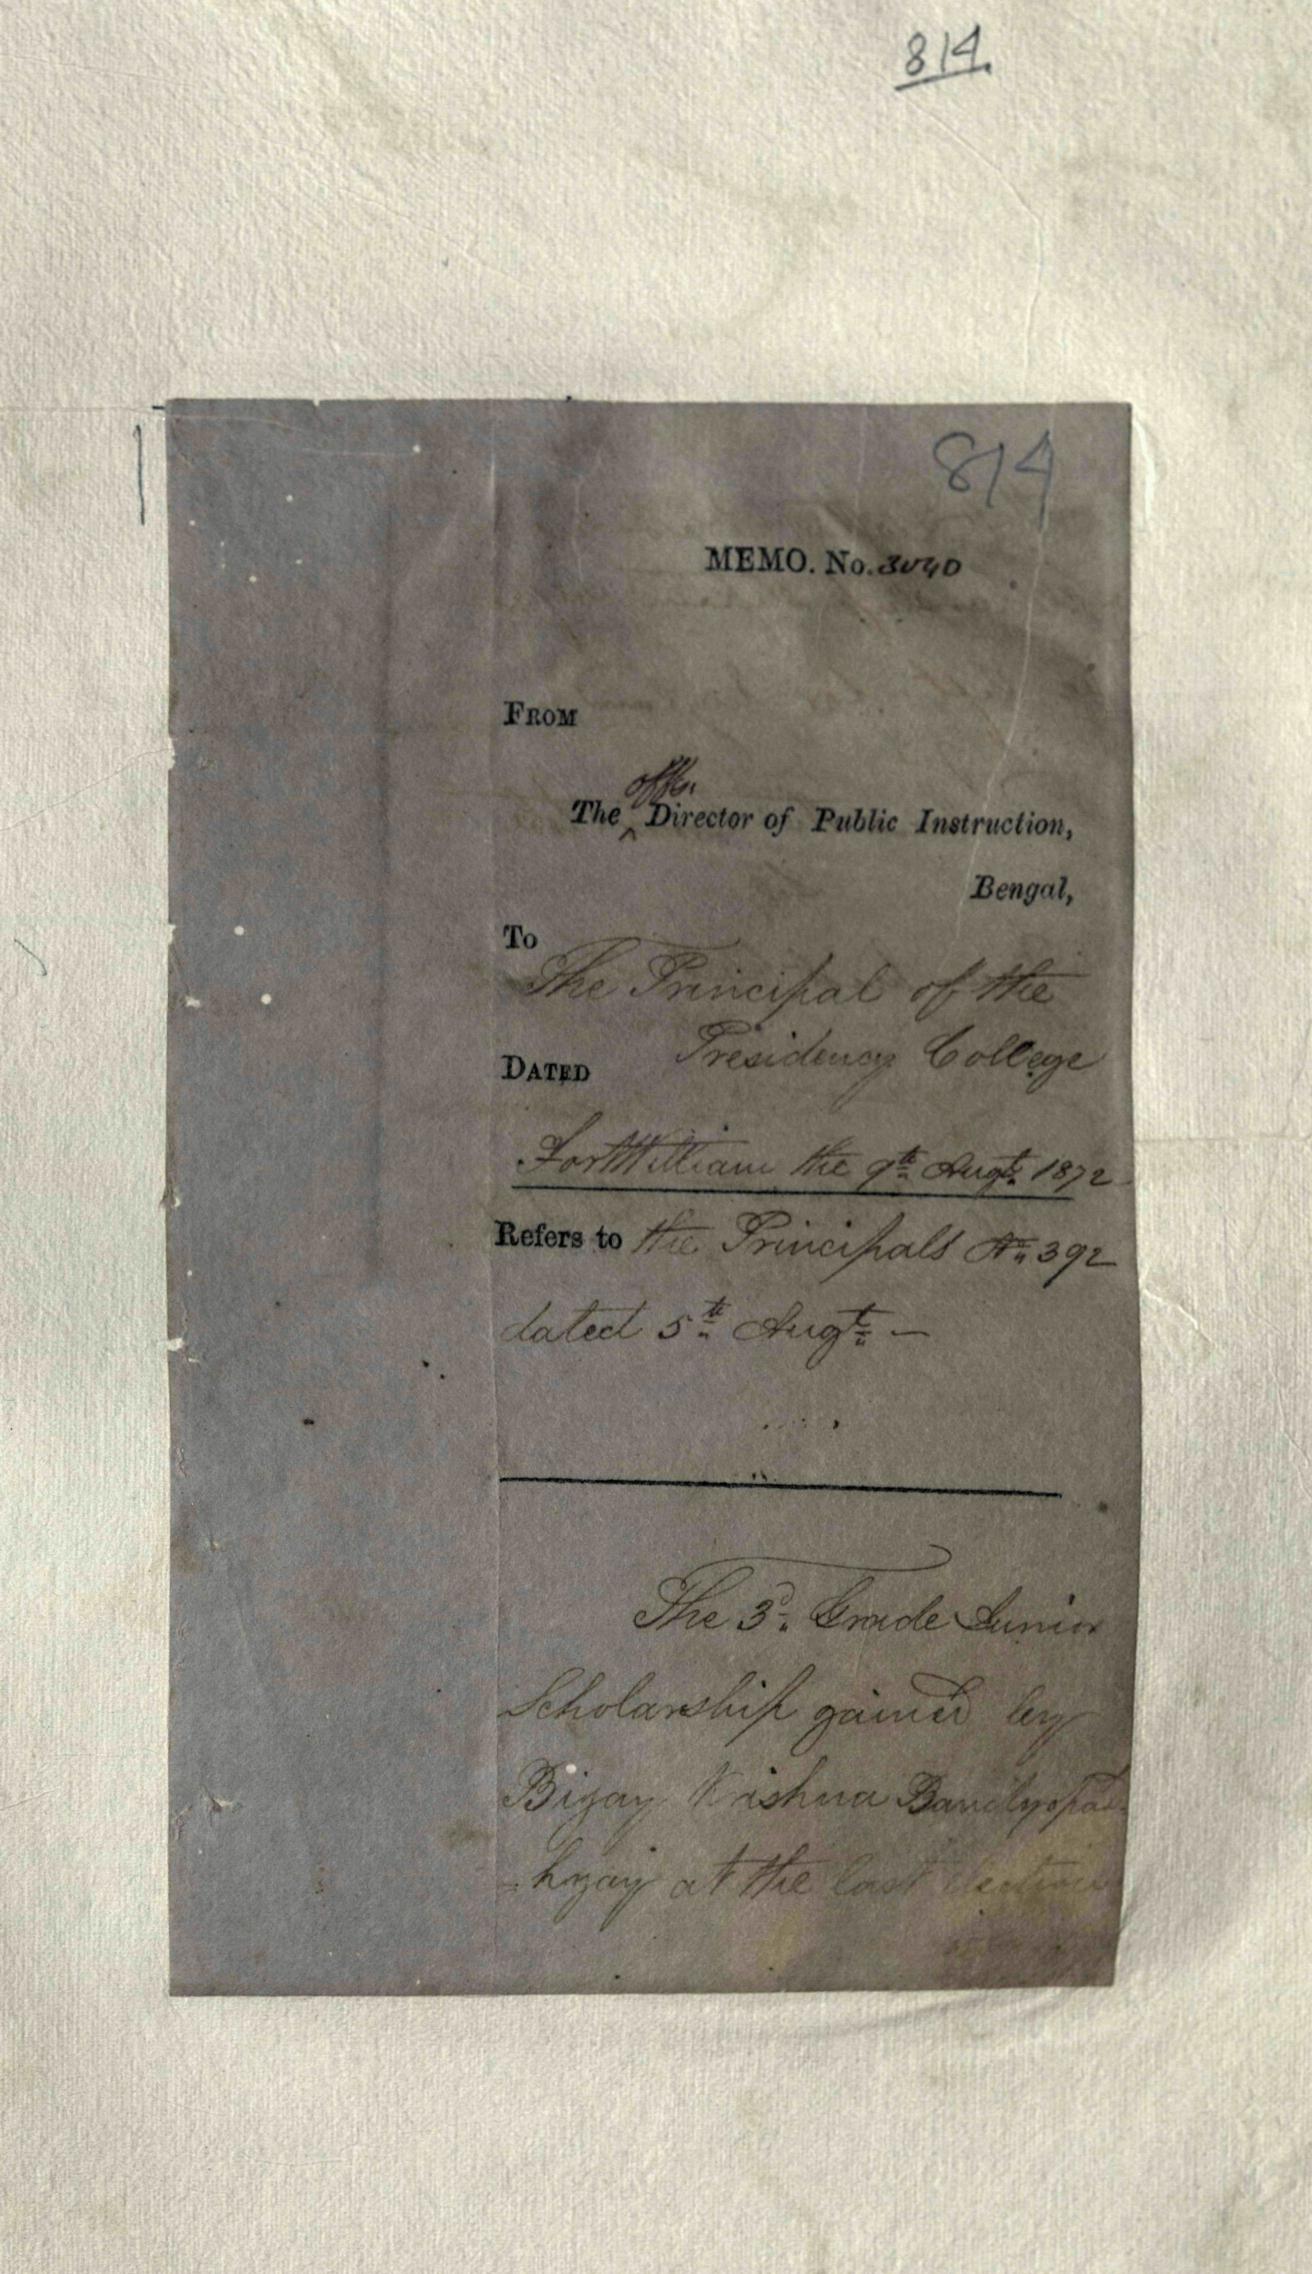 814.
814
MEMO. No. 3040
FROM
offg.
The ^ Director of Public Instruction,
Bengal,
To
The Principal of the
Presidency College
DATED
Fort William the 9th Augt. 1872
Refers to the Principals No. 392
dated 5th Augt. —
The 3d. Grade Junior
Scholarship gained by
Bijay Krishna Bandyopad-
-hyay at the last election